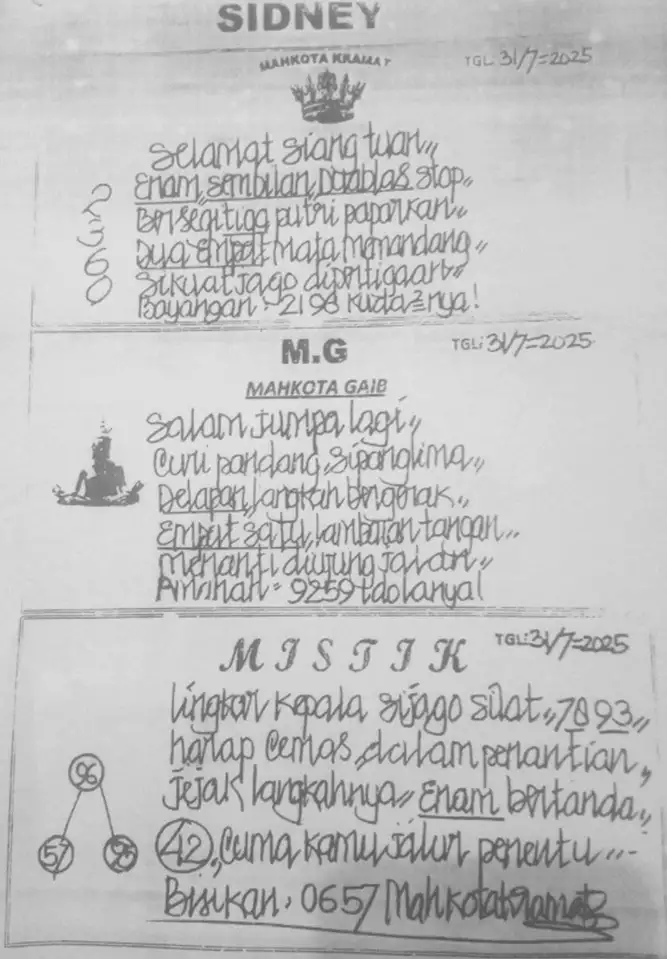 SIDNEY
MAHKOTA KRAMAT
TGL. 31/7=2025
Selamat siang tuan,,
Enam, sembilan, Duablas stop,,
Bersegitiga putri paparkan,,
Dua empat mata memandang,,
Sikuat jago dipertigaan,,
Bayangan : 2198 kuda2nya!
M.G
TGL: 31/7=2025
MAHKOTA GAIB
Salam jumpa lagi,,
Curi pandang, sipanglima,,
Delapan, langkah bergerak,,
Empat satu, lambaian tangan,,
Menanti diujung jalan,,
9259
MISTIK
TGL: 31/7=2025
lingkar kepala sijago silat,, 7893,,
harap cemas, dalam penantian,,
jejak langkahnya,, Enam bertanda,,
96
57
42, Cuma kamu jalur penentu,,
Bisikan : 0657 Mahkota kramat